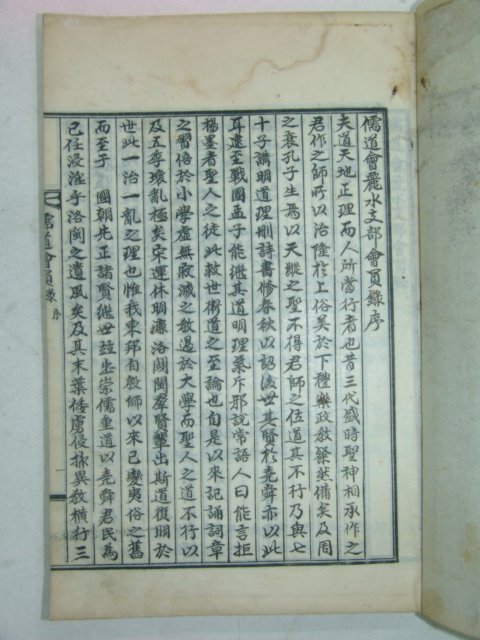 儒道會麗水支部會員錄序
夫道天地正理而人所當行者也昔三代盛時聖神相承作之
君作之師所以治隆於上俗美於下禮樂政教粲然備矣及周
之衰孔子生焉以天縱之聖不得君師之位道其不行乃與七
十子講明道理刪詩書修春秋以詔後世其賢於堯舜亦以此
耳逮至戰國孟子能繼其道明理氣斥邪說常語人曰能言拒
楊墨者聖人之徒此救世衛道之至論也自是以來記誦詞章
之習倍於小學虛無寂滅之教過於大學而聖人之道不行以
及五季壞亂極矣宋運休明濂洛關閩羣賢輩出斯道復明於
世此一治一亂之理也惟我東邦自殷師以來已變夷俗之舊
而至于 國朝先正諸賢繼世迭出崇儒重道以堯舜君民爲
己任浸淫乎洛閩之遺風矣及其末葉倭虜侵據異教橫行三
儒道會員錄 序